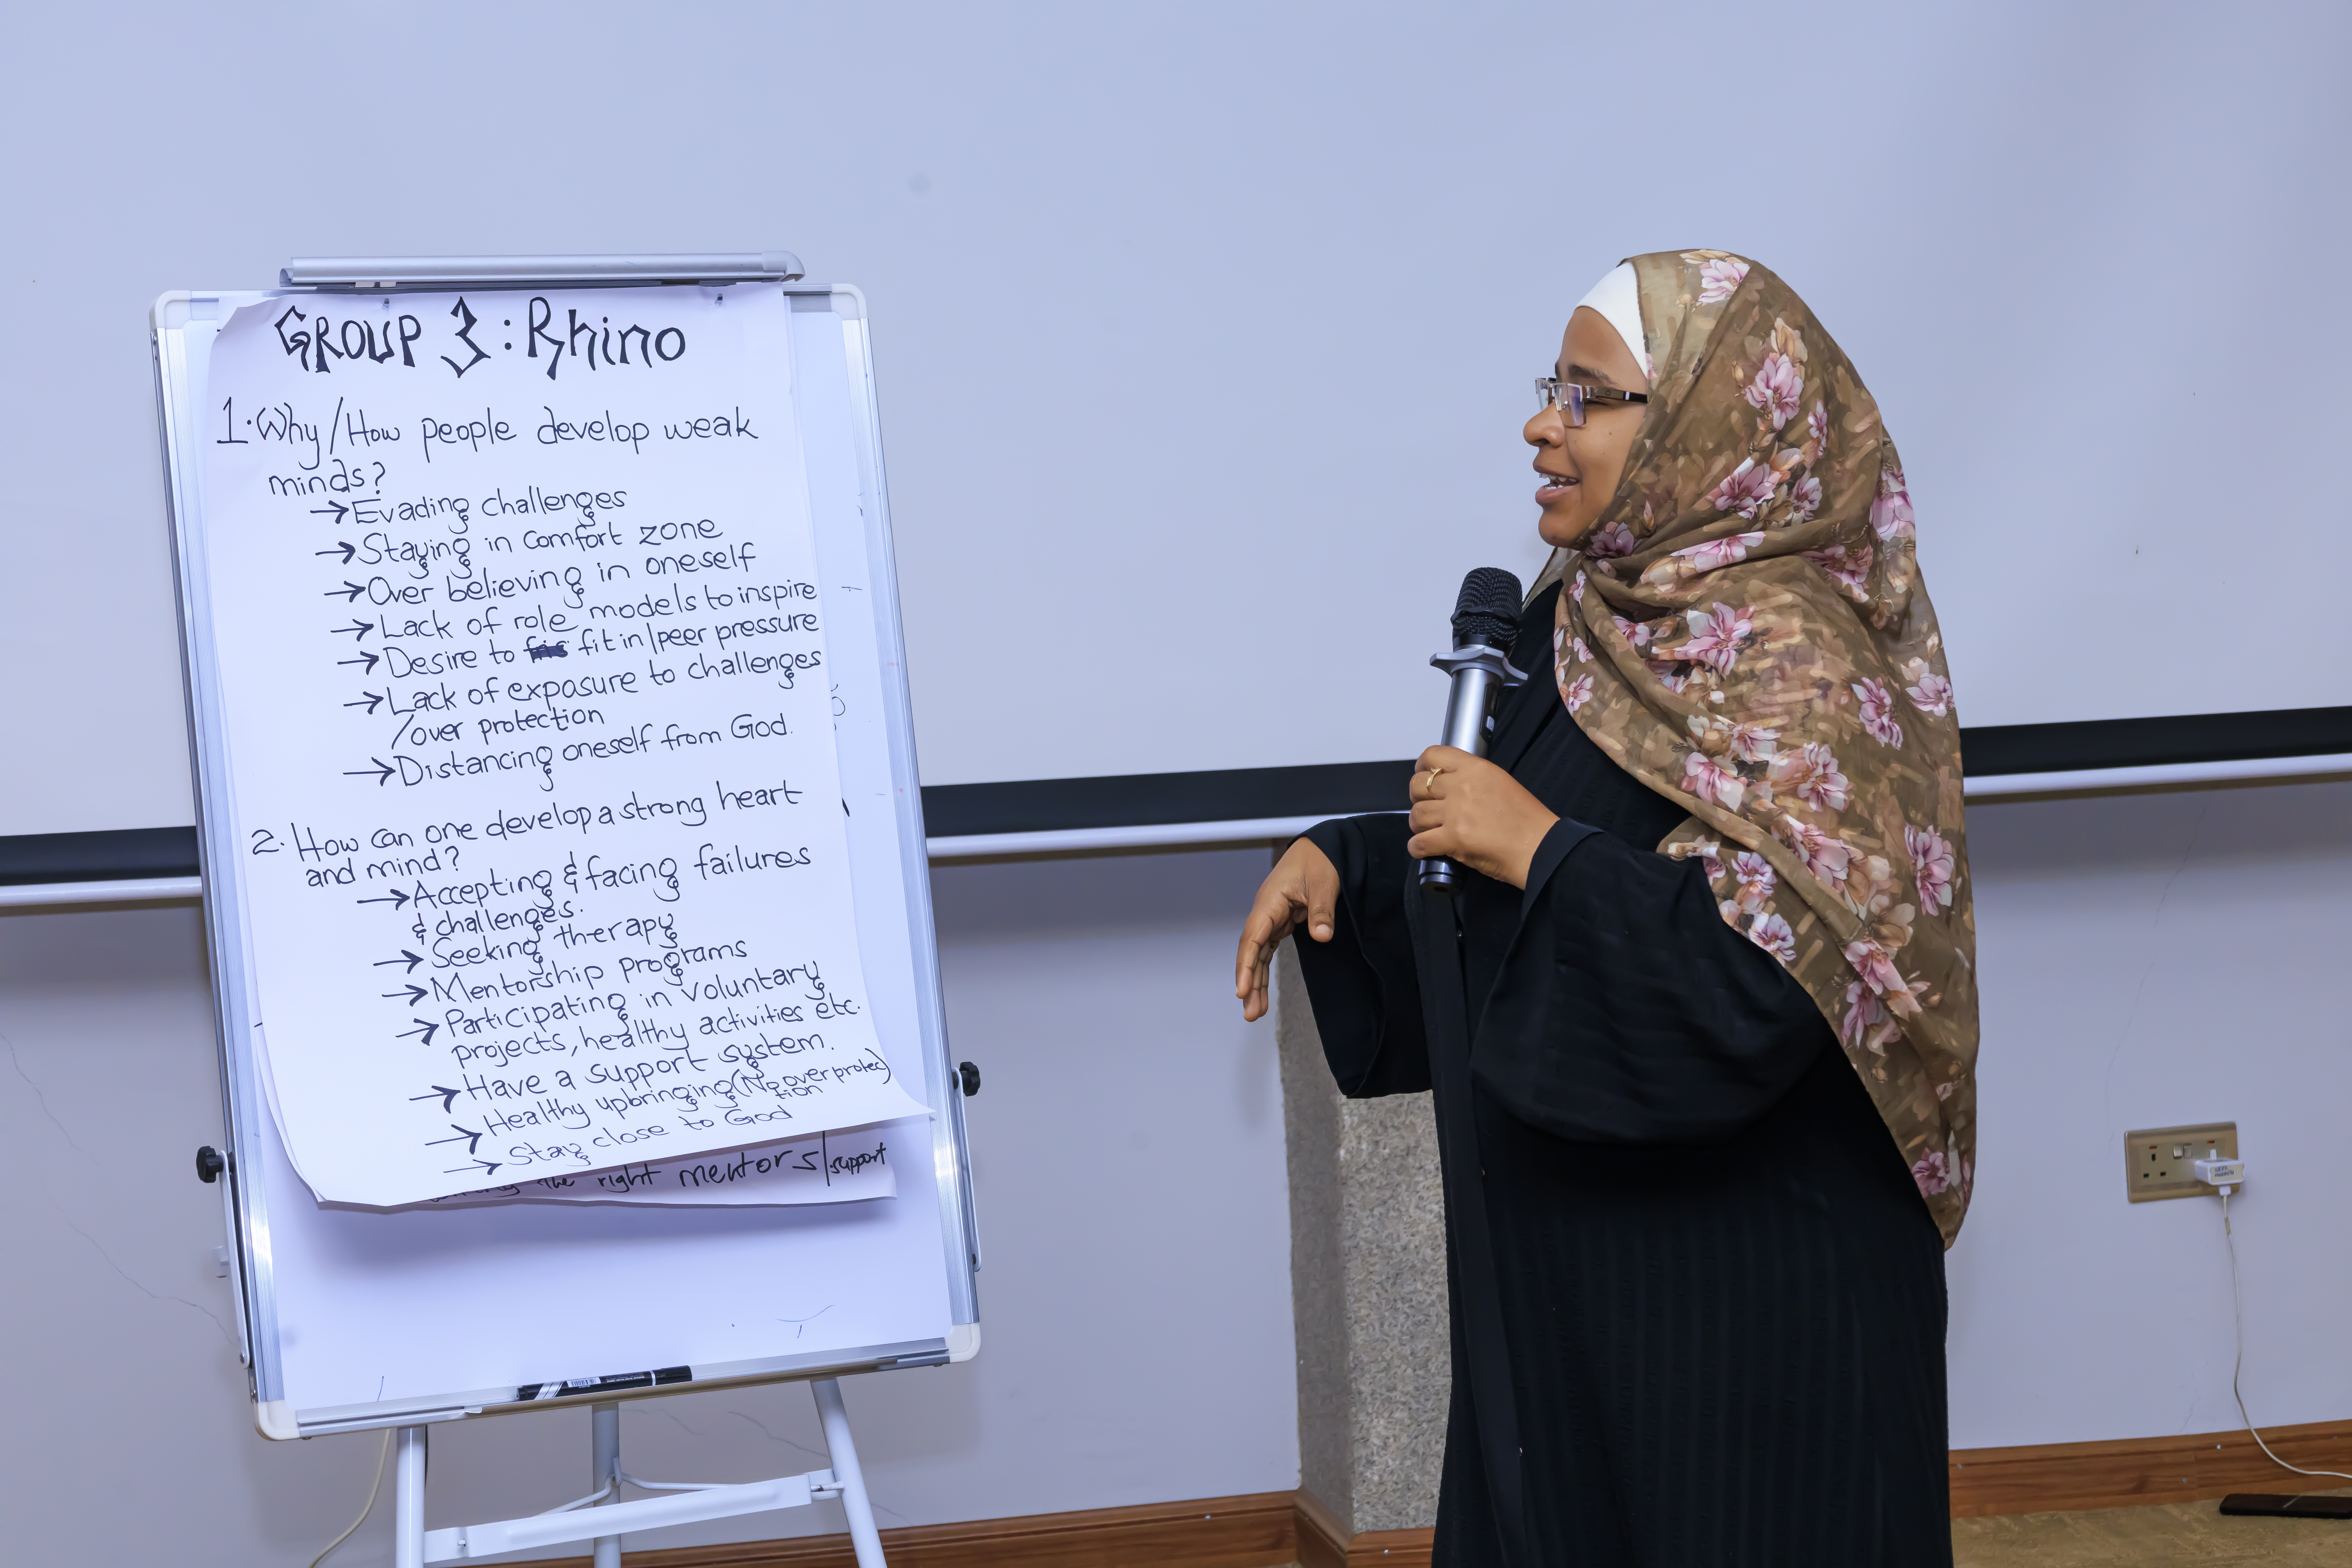 GROUP 3: Rhino
1. Why/How people develop weak
minds?
→ Evading challenges
→ Staying in comfort zone
→ Over believing in oneself
→ Lack of role models to inspire
→ Desire to fit in/peer pressure
→ Lack of exposure to challenges
/over protection
→ Distancing oneself from God.
2. How can one develop a strong heart
and mind?
→ Accepting & facing failures
& challenges.
→ Seeking therapy
→ Mentorship programs
→ Participating in voluntary
projects, healthy activities etc.
→ Have a support system.
→ Healthy upbringing (No over protec)
tion
→ Stay close to God
the right mentors/support